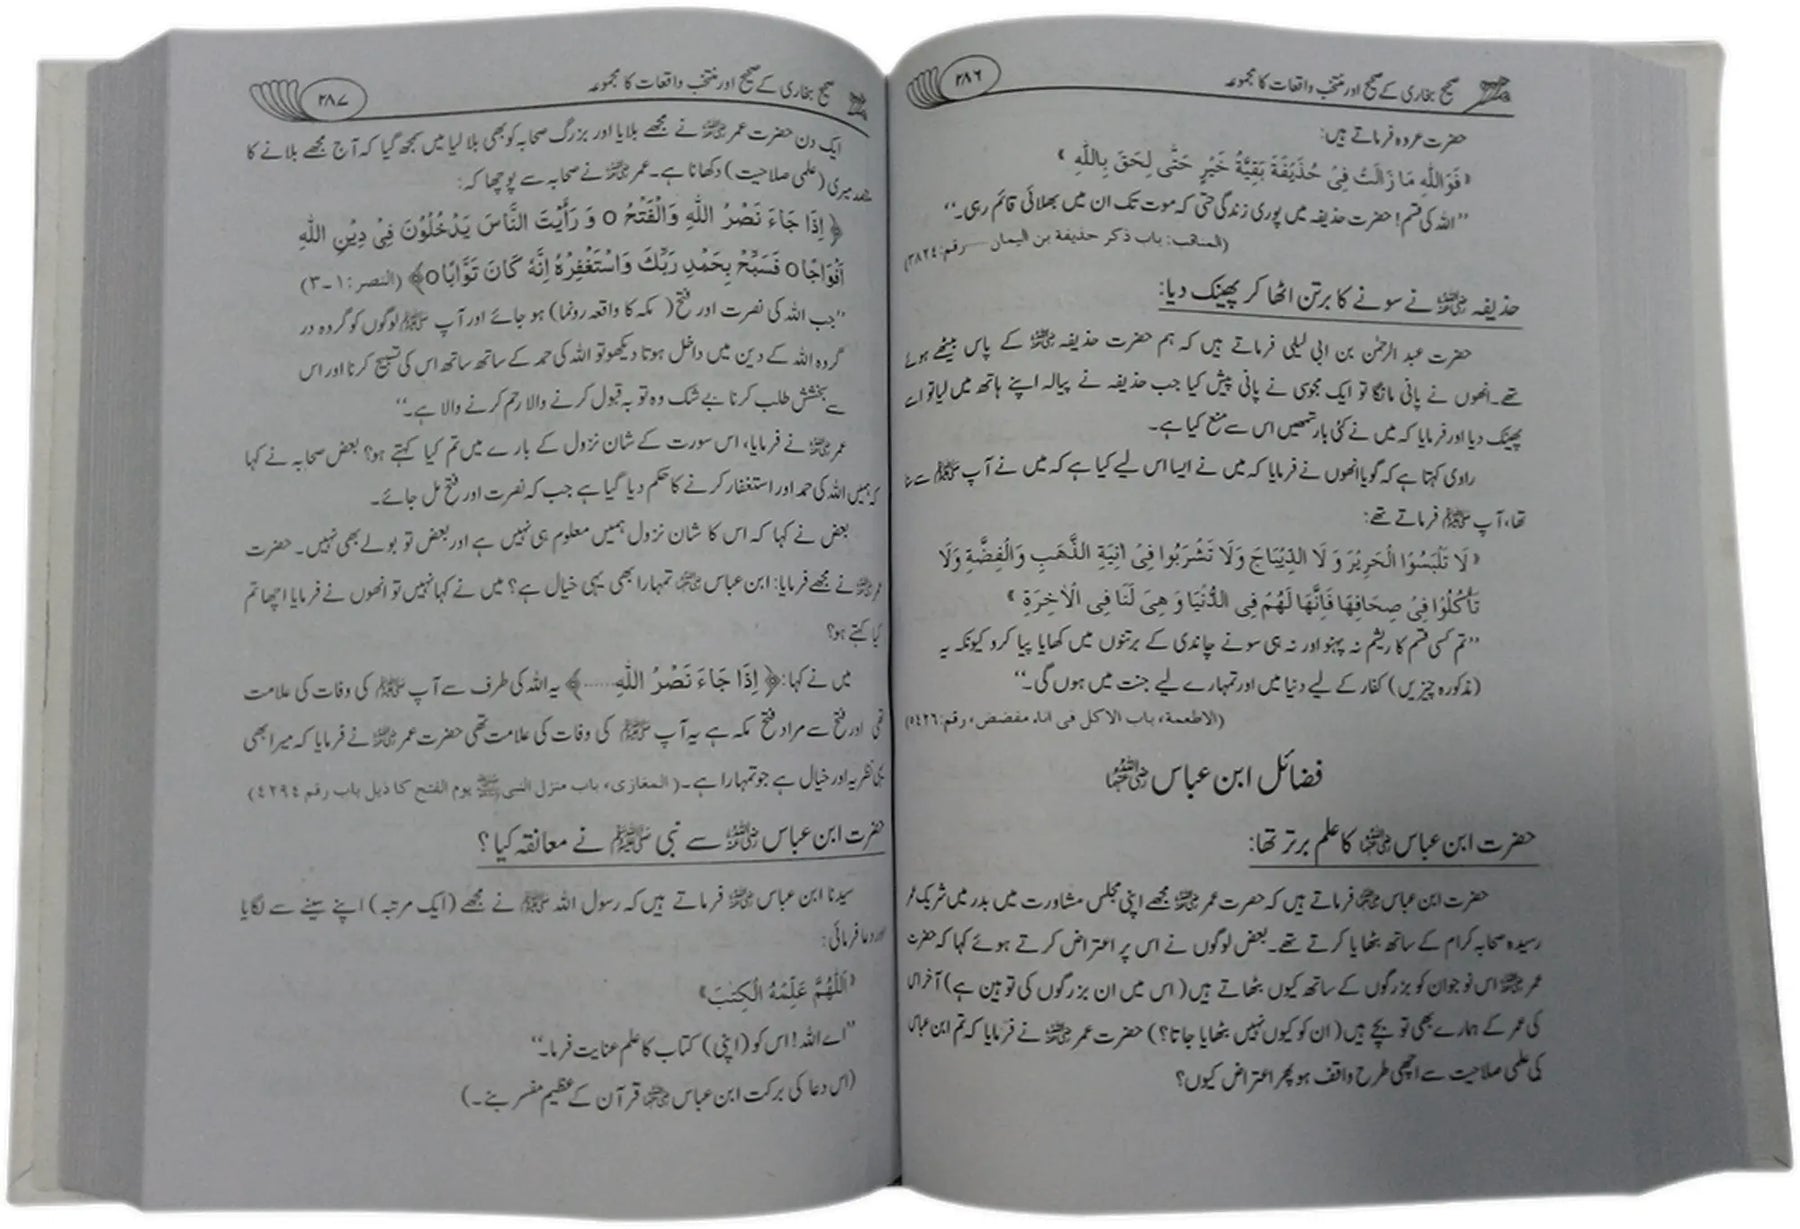 صحیح بخاری کے صحیح اور منتخب واقعات کا مجموعہ ۲۸۶
حضرت عروہ فرماتے ہیں:
« فَوَاللّٰهِ مَا زَالَتْ فِیْ حُذَیْفَةَ بَقِیَّةُ خَیْرٍ حَتّٰی لَحِقَ بِاللّٰهِ »
’’اللہ کی قسم! حضرت حذیفہ میں پوری زندگی حتی کہ موت تک ان میں بھلائی قائم رہی۔‘‘
(المناقب: باب ذکر حذیفة بن الیمان ــــ رقم: ۳۸۲۴)
حذیفہ رضی اللہ عنہ نے سونے کا برتن اٹھا کر پھینک دیا:
حضرت عبد الرحمٰن بن ابی لیلی فرماتے ہیں کہ ہم حضرت حذیفہ رضی اللہ عنہ کے پاس بیٹھے ہوئے
تھے۔ انھوں نے پانی مانگا تو ایک مجوسی نے پانی پیش کیا جب حذیفہ نے پیالہ اپنے ہاتھ میں لیا تو اسے
پھینک دیا اور فرمایا کہ میں نے کئی بار تمھیں اس سے منع کیا ہے۔
راوی کہتا ہے کہ گویا انھوں نے فرمایا کہ میں نے ایسا اس لیے کیا ہے کہ میں نے آپ ﷺ سے سنا
تھا، آپ ﷺ فرماتے تھے:
« لَا تَلْبَسُوْا الْحَرِیْرَ وَ لَا الدِّیْبَاجَ وَلَا تَشْرَبُوا فِیْ اٰنِیَةِ الذَّهَبِ وَالْفِضَّةِ وَلَا
تَأْکُلُوْا فِیْ صِحَافِهَا فَاِنَّهَا لَهُمْ فِی الدُّنْیَا وَ هِیَ لَنَا فِی الْاٰخِرَةِ »
’’تم کسی قسم کا ریشم نہ پہنو اور نہ ہی سونے چاندی کے برتنوں میں کھایا پیا کرو کیونکہ یہ
(مذکورہ چیزیں) کفار کے لیے دنیا میں اور تمہارے لیے جنت میں ہوں گی۔‘‘
(الاطعمة، باب الاکل فی اناء مفضض، رقم: ۵۴۲۶)
فضائل ابن عباس رضی اللہ عنہما
حضرت ابن عباس رضی اللہ عنہما کا علم برتر تھا:
حضرت ابن عباس رضی اللہ عنہما فرماتے ہیں کہ حضرت عمر رضی اللہ عنہ مجھے اپنی مجلس مشاورت میں بدر میں شریک عمر
رسیدہ صحابہ کرام کے ساتھ بٹھایا کرتے تھے۔ بعض لوگوں نے اس پر اعتراض کرتے ہوئے کہا کہ حضرت
عمر رضی اللہ عنہ اس نوجوان کو بزرگوں کے ساتھ کیوں بٹھاتے ہیں (اس میں ان بزرگوں کی توہین ہے) آخر اس
کی عمر کے ہمارے بھی تو بچے ہیں (ان کو کیوں نہیں بٹھایا جاتا؟) حضرت عمر رضی اللہ عنہ نے فرمایا کہ تم ابن عباس
کی علمی صلاحیت سے اچھی طرح واقف ہو پھر اعتراض کیوں؟
صحیح بخاری کے صحیح اور منتخب واقعات کا مجموعہ ۲۸۷
ایک دن حضرت عمر رضی اللہ عنہ نے مجھے بلایا اور بزرگ صحابہ کو بھی بلا لیا میں سمجھ گیا کہ آج مجھے بلانے کا
مقصد میری (علمی صلاحیت) دکھانا ہے۔ عمر رضی اللہ عنہ نے صحابہ سے پوچھا کہ:
﴿ اِذَا جَاءَ نَصْرُ اللّٰهِ وَالْفَتْحُ o وَ رَأَیْتَ النَّاسَ یَدْخُلُوْنَ فِیْ دِیْنِ اللّٰهِ
اَفْوَاجًا o فَسَبِّحْ بِحَمْدِ رَبِّكَ وَاسْتَغْفِرْهُ اِنَّهُ كَانَ تَوَّابًا o ﴾ (النصر: ۱ـ۳)
’’جب اللہ کی نصرت اور فتح (مکہ کا واقعہ رونما) ہو جائے اور آپ ﷺ لوگوں کو گروہ در
گروہ اللہ کے دین میں داخل ہوتا دیکھو تو اللہ کی حمد کے ساتھ ساتھ اس کی تسبیح کرنا اور اس
سے بخشش طلب کرنا بے شک وہ توبہ قبول کرنے والا رحم کرنے والا ہے۔‘‘
عمر رضی اللہ عنہ نے فرمایا، اس سورت کے شان نزول کے بارے میں تم کیا کہتے ہو؟ بعض صحابہ نے کہا
کہ ہمیں اللہ کی حمد اور استغفار کرنے کا حکم دیا گیا ہے جب کہ نصرت اور فتح مل جائے۔
بعض نے کہا کہ اس کا شان نزول ہمیں معلوم ہی نہیں ہے اور بعض تو بولے بھی نہیں۔ حضرت
عمر رضی اللہ عنہ نے مجھے فرمایا: ابن عباس رضی اللہ عنہما تمہارا بھی یہی خیال ہے؟ میں نے کہا نہیں تو انھوں نے فرمایا اچھا تم
کیا کہتے ہو؟
میں نے کہا: ﴿ اِذَا جَاءَ نَصْرُ اللّٰهِ ......﴾ یہ اللہ کی طرف سے آپ ﷺ کی وفات کی علامت
تھی اور فتح سے مراد فتح مکہ ہے یہ آپ ﷺ کی وفات کی علامت تھی حضرت عمر رضی اللہ عنہ نے فرمایا کہ میرا بھی
یہی نظریہ اور خیال ہے جو تمہارا ہے۔ (المغازی، باب منزل النبی ﷺ یوم الفتح کا ذیل باب رقم ۴۲۹۴)
حضرت ابن عباس رضی اللہ عنہما سے نبی ﷺ نے معانقہ کیا؟
سیدنا ابن عباس رضی اللہ عنہما فرماتے ہیں کہ رسول اللہ ﷺ نے مجھے (ایک مرتبہ) اپنے سینے سے لگایا
اور دعا فرمائی:
« اَللّٰهُمَّ عَلِّمْهُ الْكِتٰبَ »
’’اے اللہ! اس کو (اپنی) کتاب کا علم عنایت فرما۔‘‘
(اس دعا کی برکت ابن عباس رضی اللہ عنہما قرآن کے عظیم مفسر بنے۔)